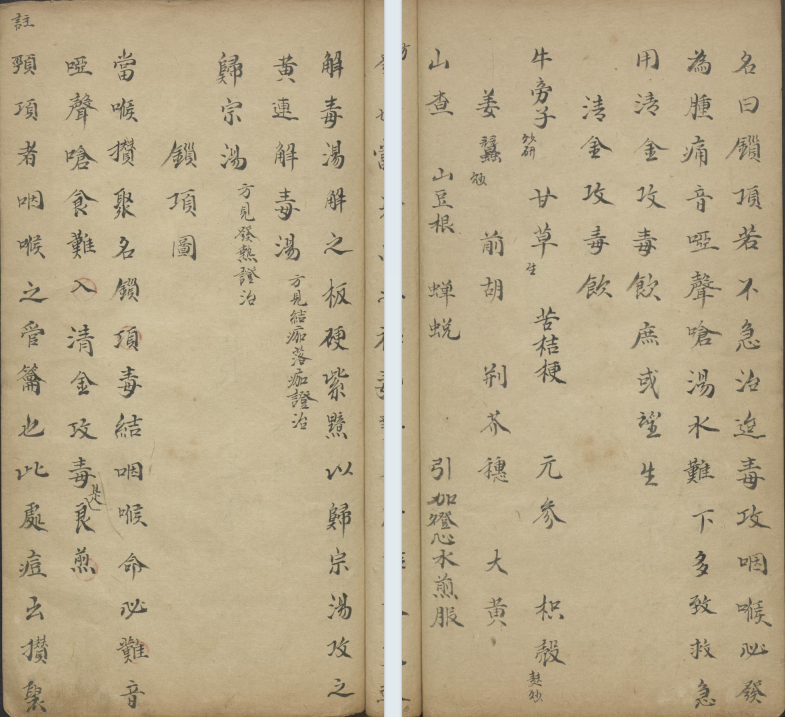 解毒湯解之板硬紫黯以歸宗湯攻之
黃連解毒湯 方見結痂落痂證治
歸宗湯 方見發熱證治
鎖項圖
當喉攢聚名鎖項毒結咽喉命必難音
啞聲嗆食難入清金攻毒是良煎
註
頸項者咽喉之管籥也此處痘出攢聚
名曰鎖項若不急治迨毒攻咽喉必發
為腫痛音啞聲嗆湯水難下多致救急
用清金攻毒飲庶或望生
清金攻毒飲
牛旁子 炒研 甘草 生 苦桔梗 元參 枳殼 麩炒
姜蠶 炒 前胡 荆芥穗 大黃
山查 山豆根 蟬蛻 引加燈心水煎服